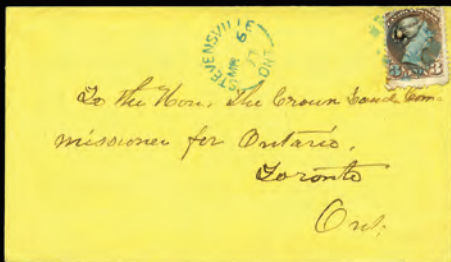 STEVENSVILLE
6
MR
ONT
3
To the Hon. The Crown Lands Com-
missioner for Ontario.
Toronto
Ont.